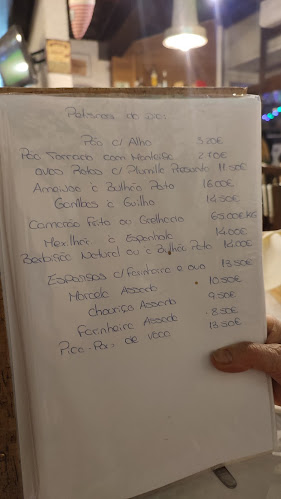 Petiscos do Dia:
Pão c/ Alho 3.20€
Pão Torrado com Manteiga 2.10€
Ovos Rotos c/ Plumillo Presunto 11.50€
Ameijoa à Bulhão Pato 16.00€
Gambas à Guilho 14.50€
Camarão Frito ou Coelhecia 65.00€ KG
Mexilhão à Espanhola 14.00€
Berbigão Natural ou à Bulhão Pato 14.00€
Espargos c/ farinheira e ovo 13.50€
Morcela Assada 10.50€
Chouriço Assado 9.50€
Farinheira Assada 8.50€
Pica-Pau de vaca 13.50€